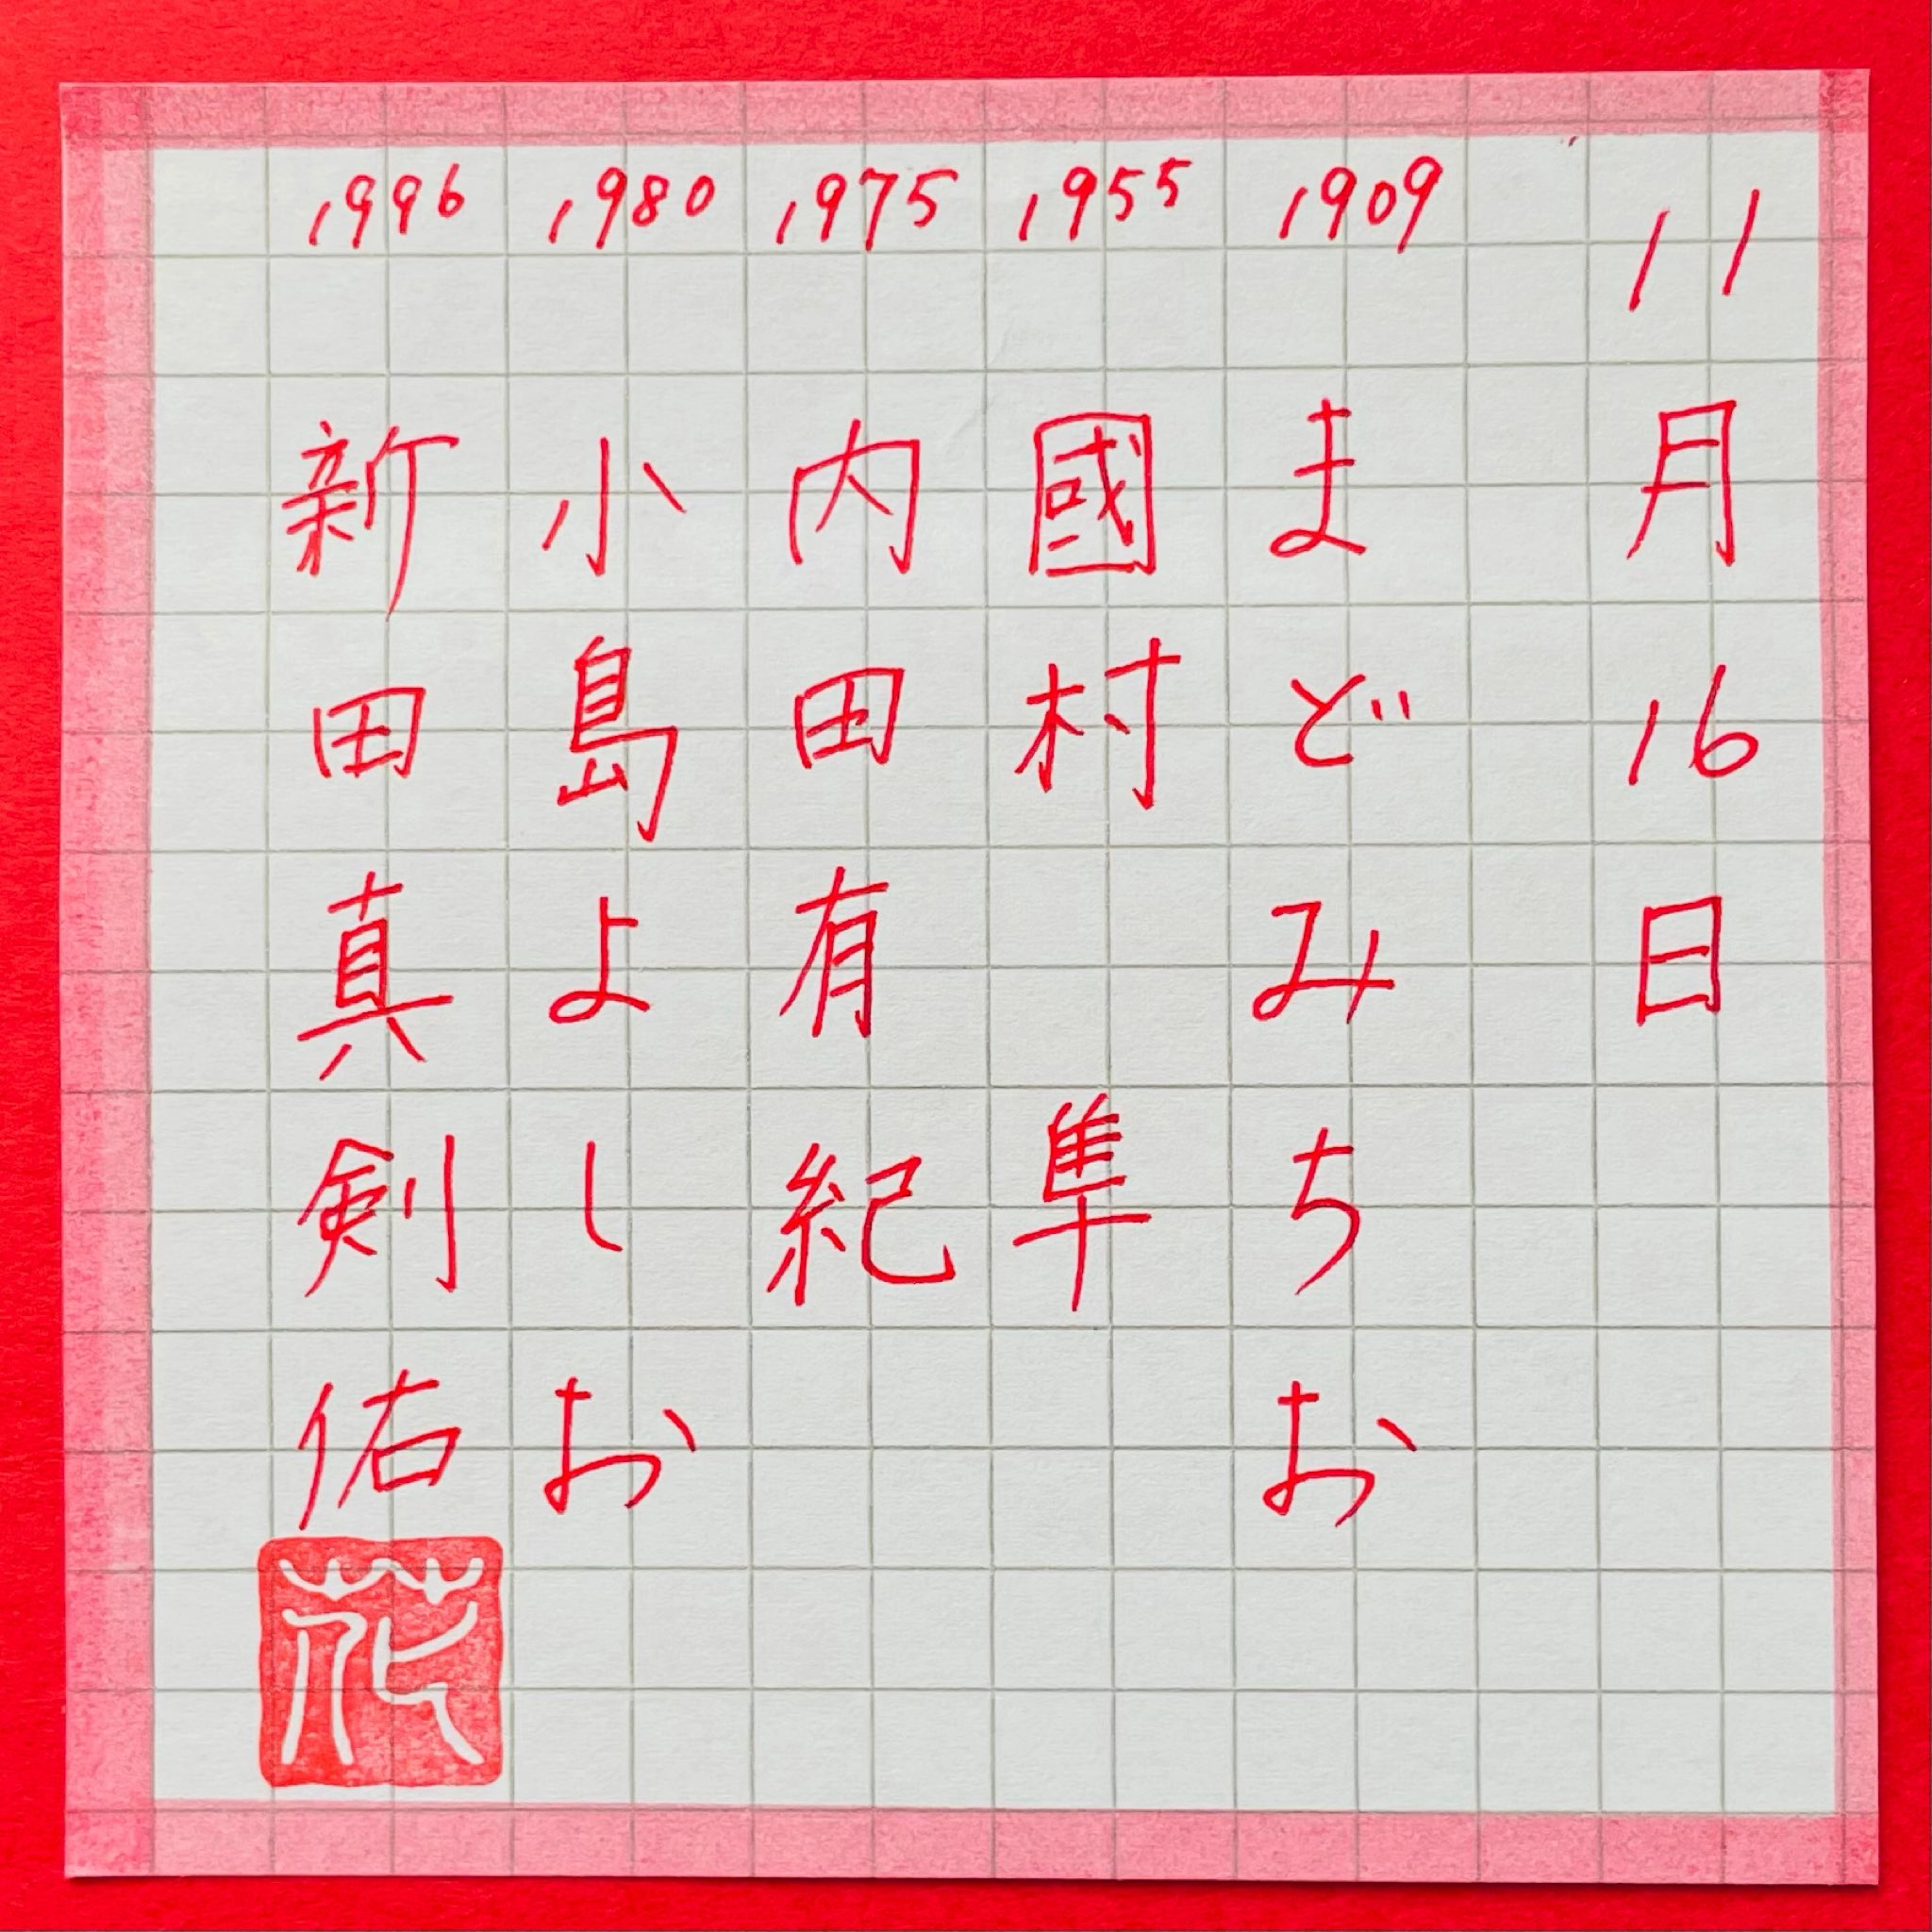 11月16日
1909 まどみちお
1955 國村隼
1975 内田有紀
1980 小島よしお
1996 新田真剣佑
花